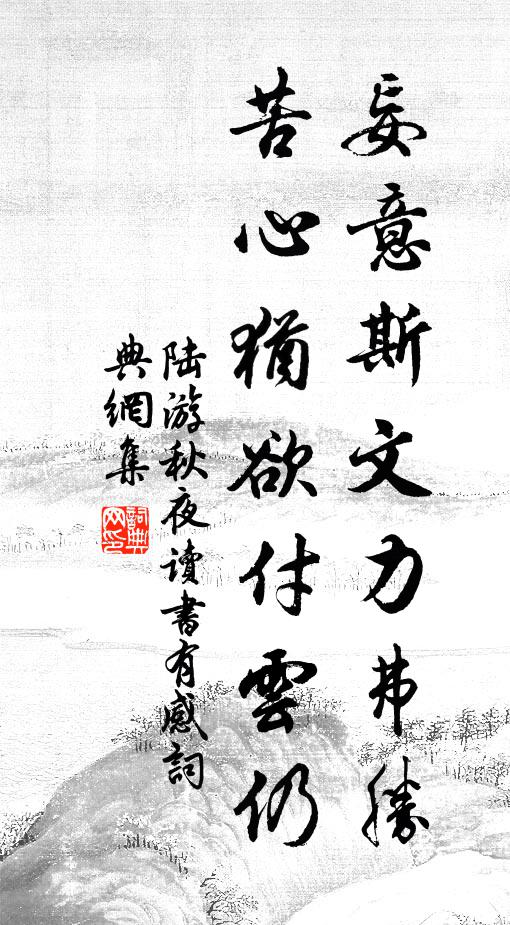 妄意斯文力弗勝
苦心猶欲付雲仍
陆游秋夜讀書有感詞
典網集
詞典網印